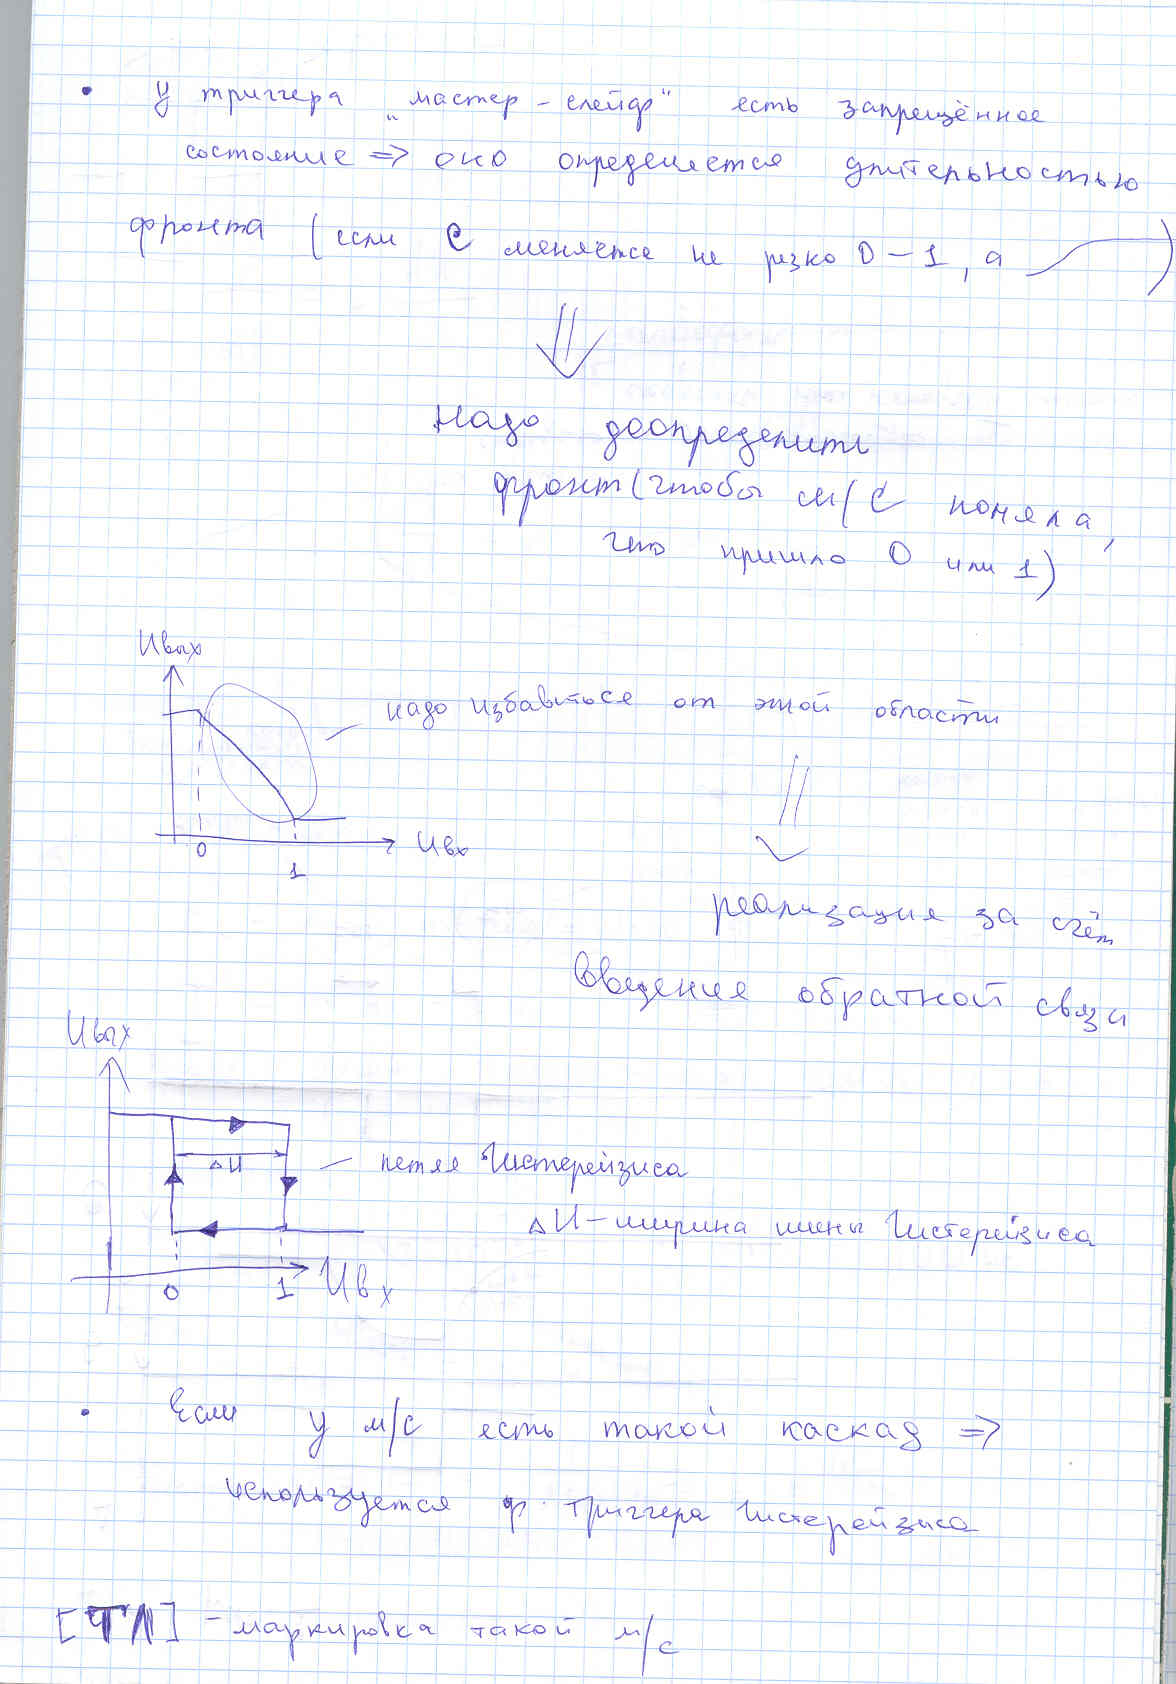 • У триггера „мастер-слейф" есть запрещённое
состояние => оно определяется длительностью
фронта (если C меняется не резко 0-1, а )
Надо доопределить
фронт (чтобы м/с поняла,
что пришло 0 или 1)
Uвых
надо избавиться от этой области
0
1
Uвх
реализация за счёт
введения обратной связи
Uвых
ΔU
петля Гистерейзиса
ΔU - ширина шины Гистерейзиса
0
1
Uвх
• Если у м/с есть такой каскад =>
используется ф. триггера Гистерейзиса
[ТЛ] - маркировка такой м/с